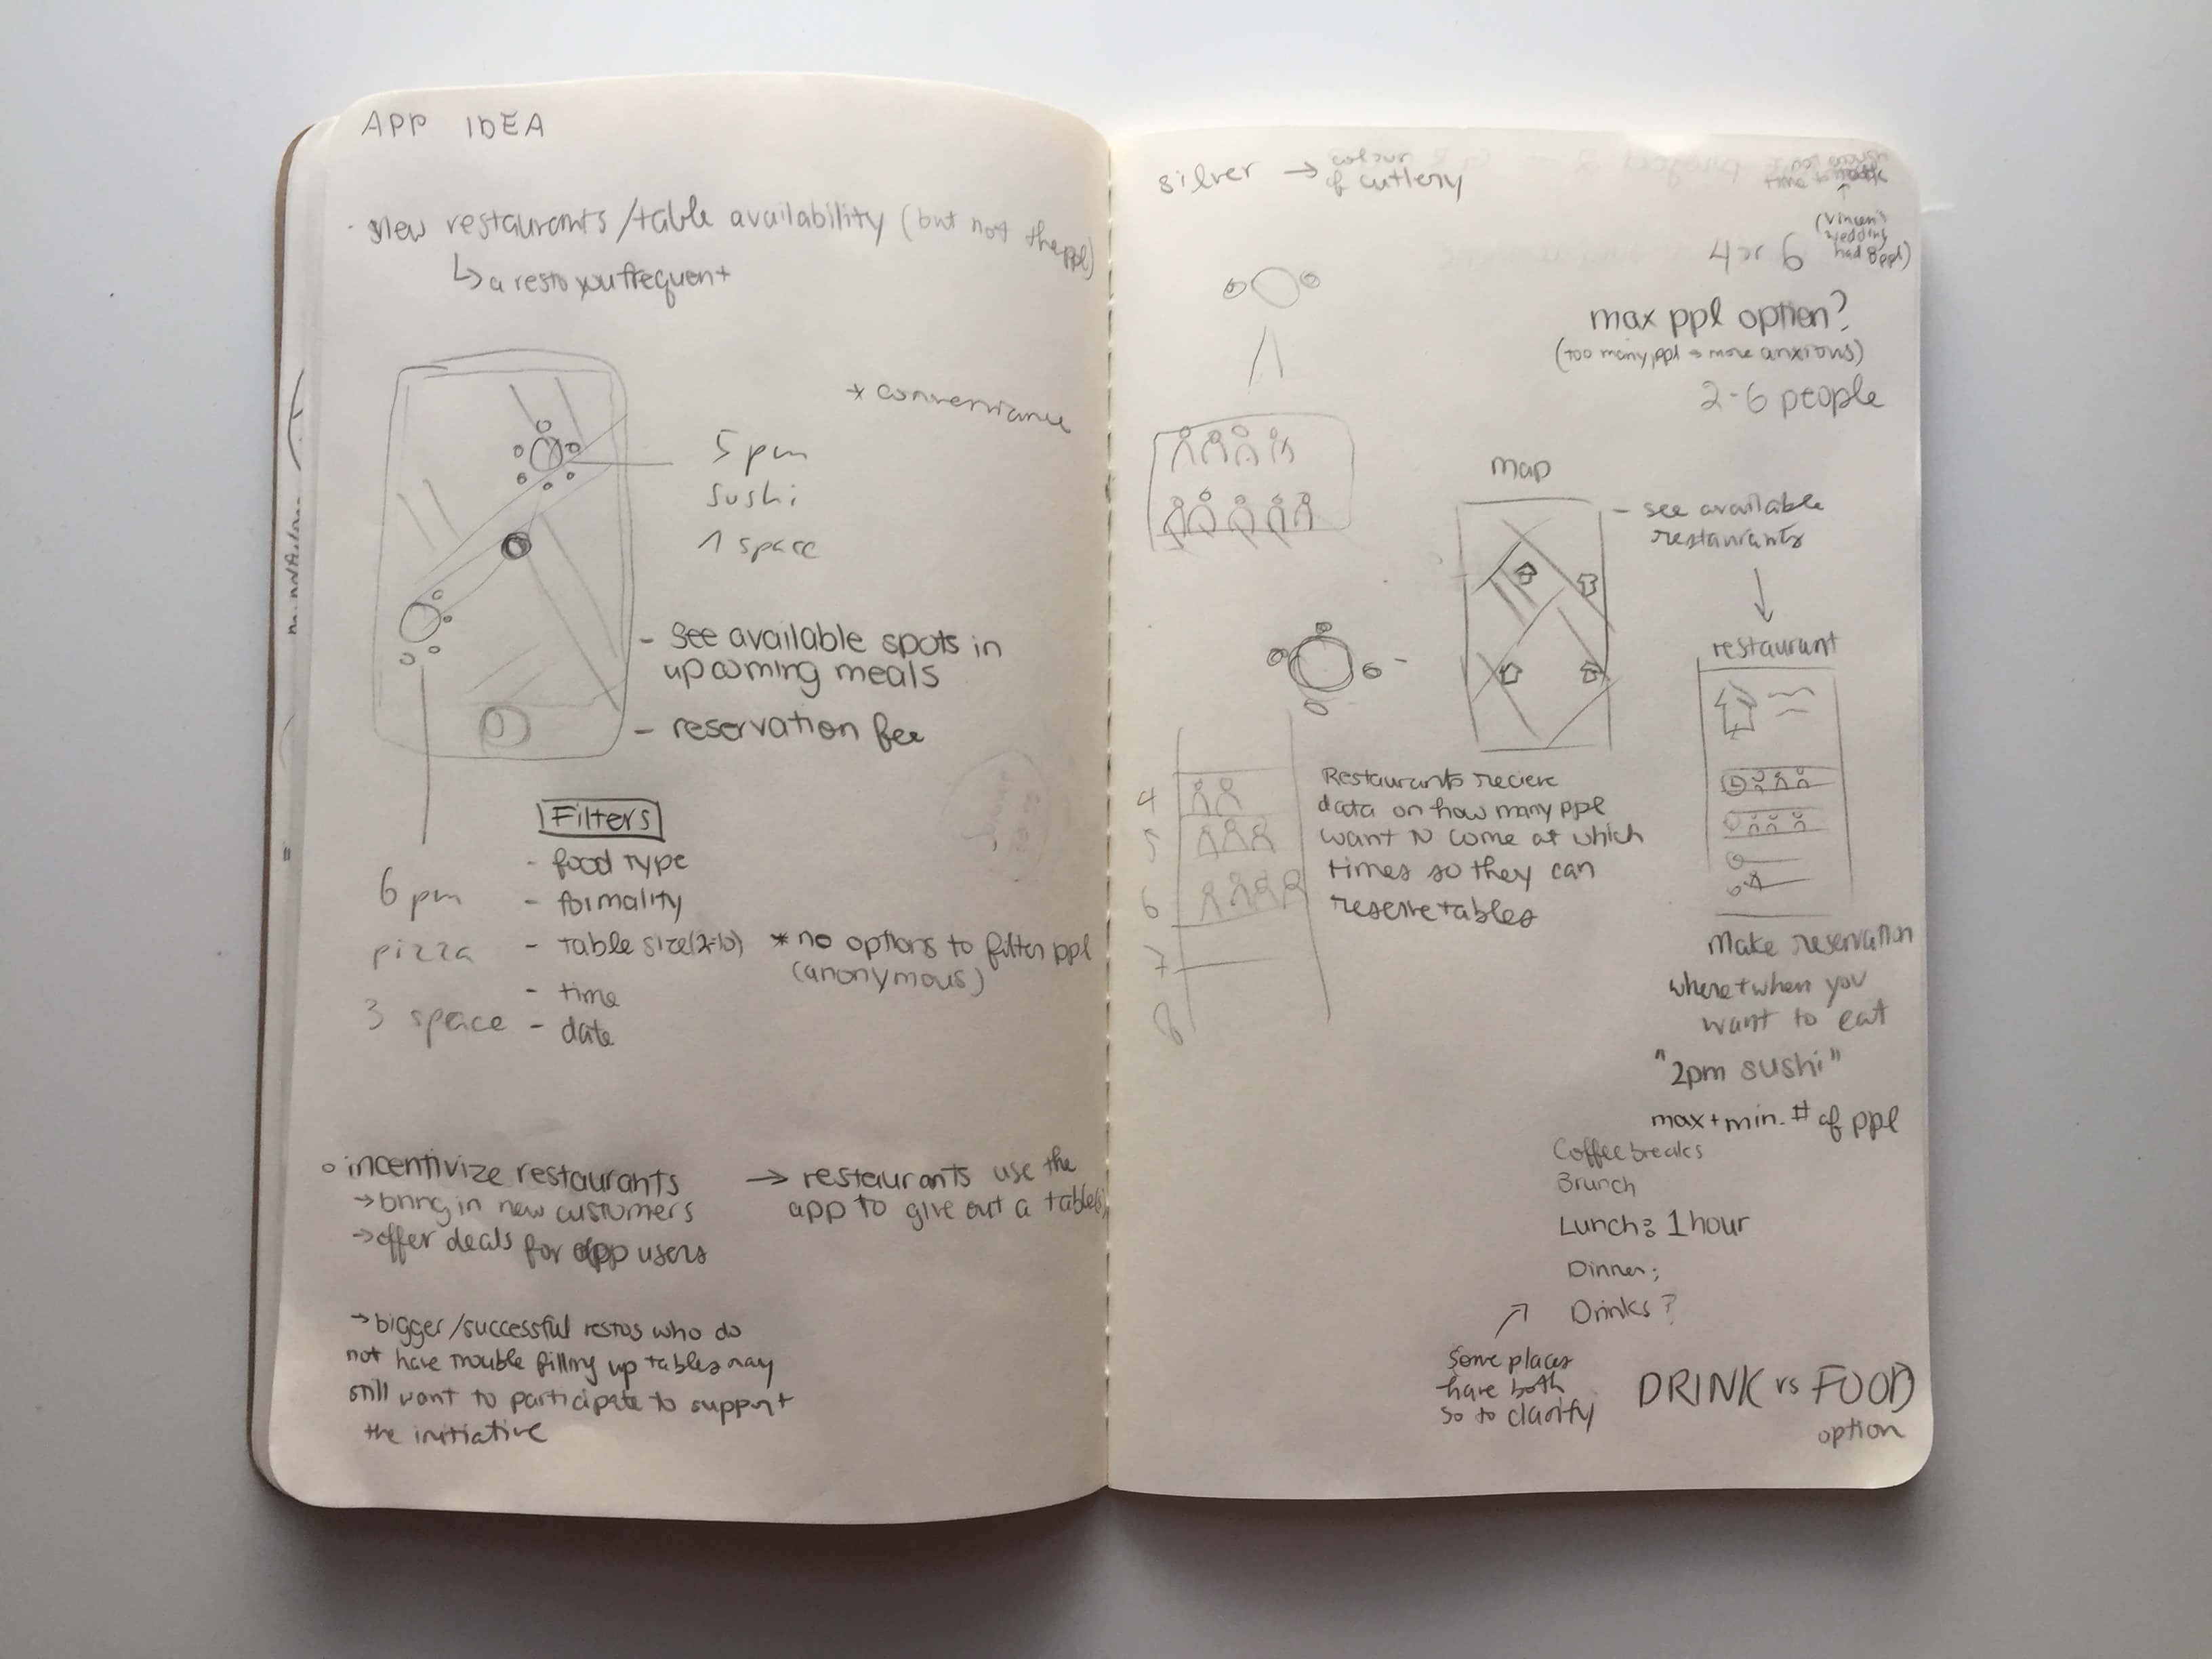 APP IDEA
- View restaurants/table availability (but not the ppl)
↳ a resto you frequent
* convenience
5 pm
sushi
1 space
- see available spots in
upcoming meals
- reservation fee
Filters
- food type
- formality
- table size (2-10)
* no options to filter ppl
(anonymous)
- time
- date
6 pm
pizza
3 space
o incentivize restaurants
→ bring in new customers
→ offer deals for app users
→ restaurants use the
app to give out a table(s)
→ bigger/successful restos who do
not have trouble filling up tables may
still want to participate to support
the initiative
silver → colour
of cutlery
not enough
time to
↑
(Vincen's
wedding
had 8 ppl)
4 or 6
max ppl option?
(too many ppl → more anxious)
2-6 people
map
- see available
restaurants
restaurant
4
5
6
7
8
Restaurants recieve
data on how many ppl
want to come at which
times so they can
reserve tables
Make reservation
where + when you
want to eat
"2pm sushi"
max + min. # of ppl
Coffee breaks
Brunch
Lunch: 1 hour
Dinner:
Drinks?
some places
have both
so to clarify
DRINK vs FOOD
option